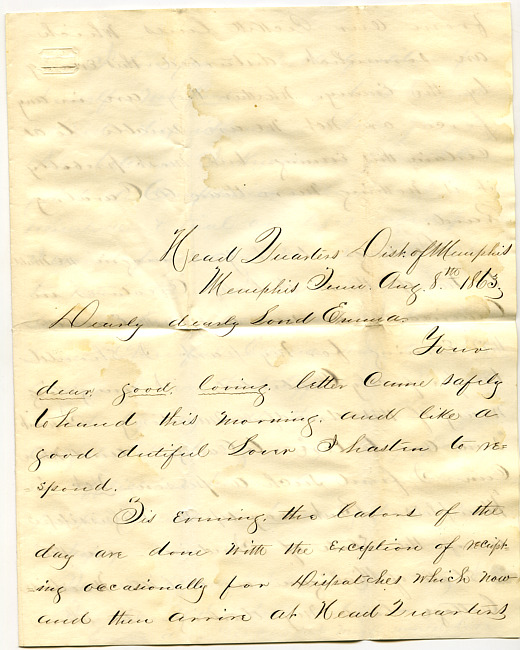 Head Quarters Dist. of Memphis
Memphis Tenn. Aug. 8.th 1863.
Dearly dearly Loved Emma.
Your
dear, good, loving, letter came safely
to hand this morning. and like a
good dutiful Lover I hasten to re-
=spond.
Tis Evening. the labors of the
day are done with the exception of receipt-
=ing occasionally for Dispatches which now
and then arrive at Head Quarters